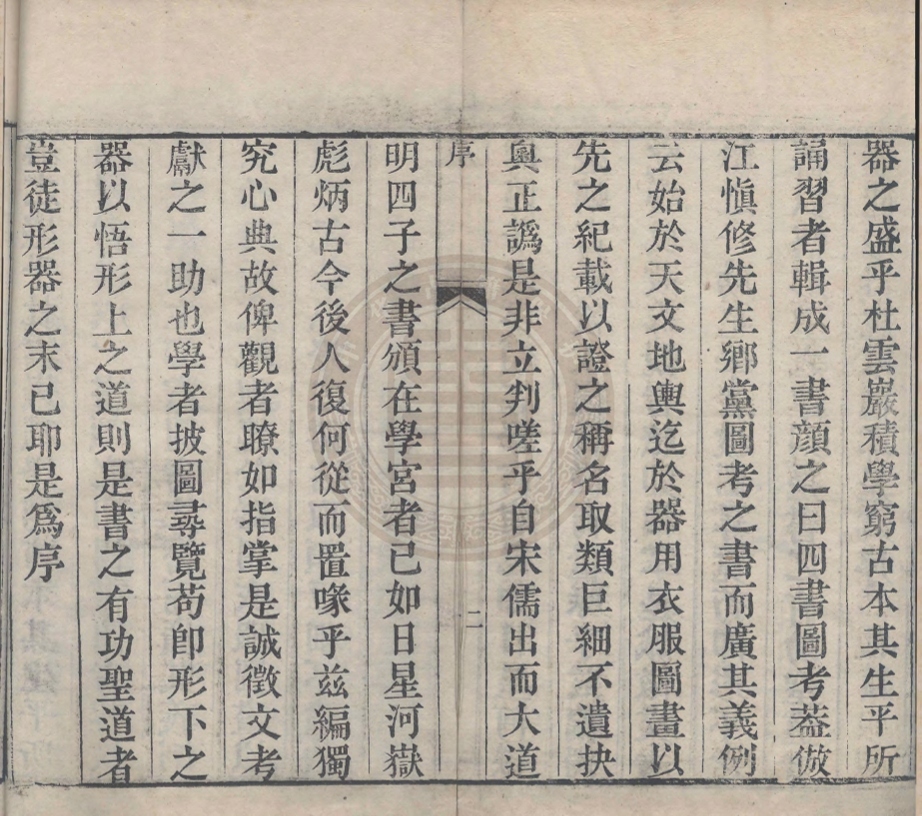 器之盛乎杜雲巖積學窮古本其生平所
誦習者輯成一書顔之曰四書圖考葢倣
江愼修先生鄉黨圖考之書而廣其義例
云始於天文地輿迄於器用衣服圖畫以
先之紀載以證之稱名取類巨細不遺抉
奥正譌是非立判嗟乎自宋儒出而大道
序
二
明四子之書頒在學宮者已如日星河嶽
彪炳古今後人復何從而置喙乎兹編獨
究心典故俾觀者瞭如指掌是誠徵文考
獻之一助也學者披圖尋覽苟卽形下之
器以悟形上之道則是書之有功聖道者
豈徒形器之末已耶是爲序